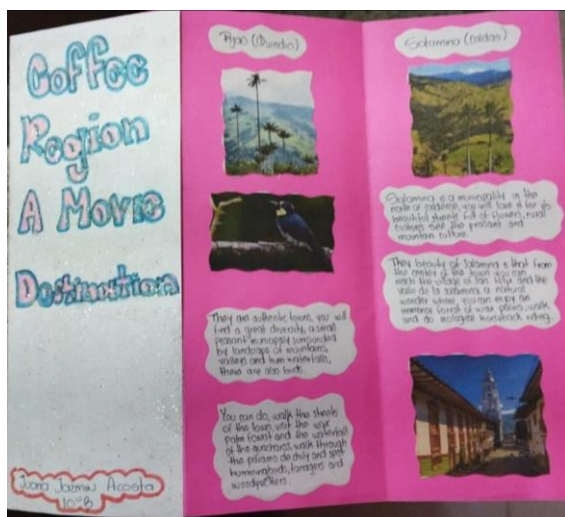 Coffee
Region
A Movie
Destination
Juana Jazmin Acosta
10°B
Pijao (Quindío)
They are authentic towns, you will
find a great diversity, a small
peasant municipality surrounded
by landscape of mountains,
valleys and waterfalls,
there are also birds.
You can do, walk the streets
of the town, visit the wax
palm forest and the waterfall
of the
the páramo de chily and spot
hummingbirds, tanagers and
woodpeckers.
Salamina (Caldas)
Salamina is a municipality in the
north of caldense, you will love it for its
beautiful streets full of flowers, rural
see the peasant and
mountain culture.
They beauty of Salamina is that from
the center of the town you can
reach the village of San Felix and the
valle de la salamina a natural
wonder where you can enjoy an
immense forest of wax palms, walk
and do ecological horseback riding.